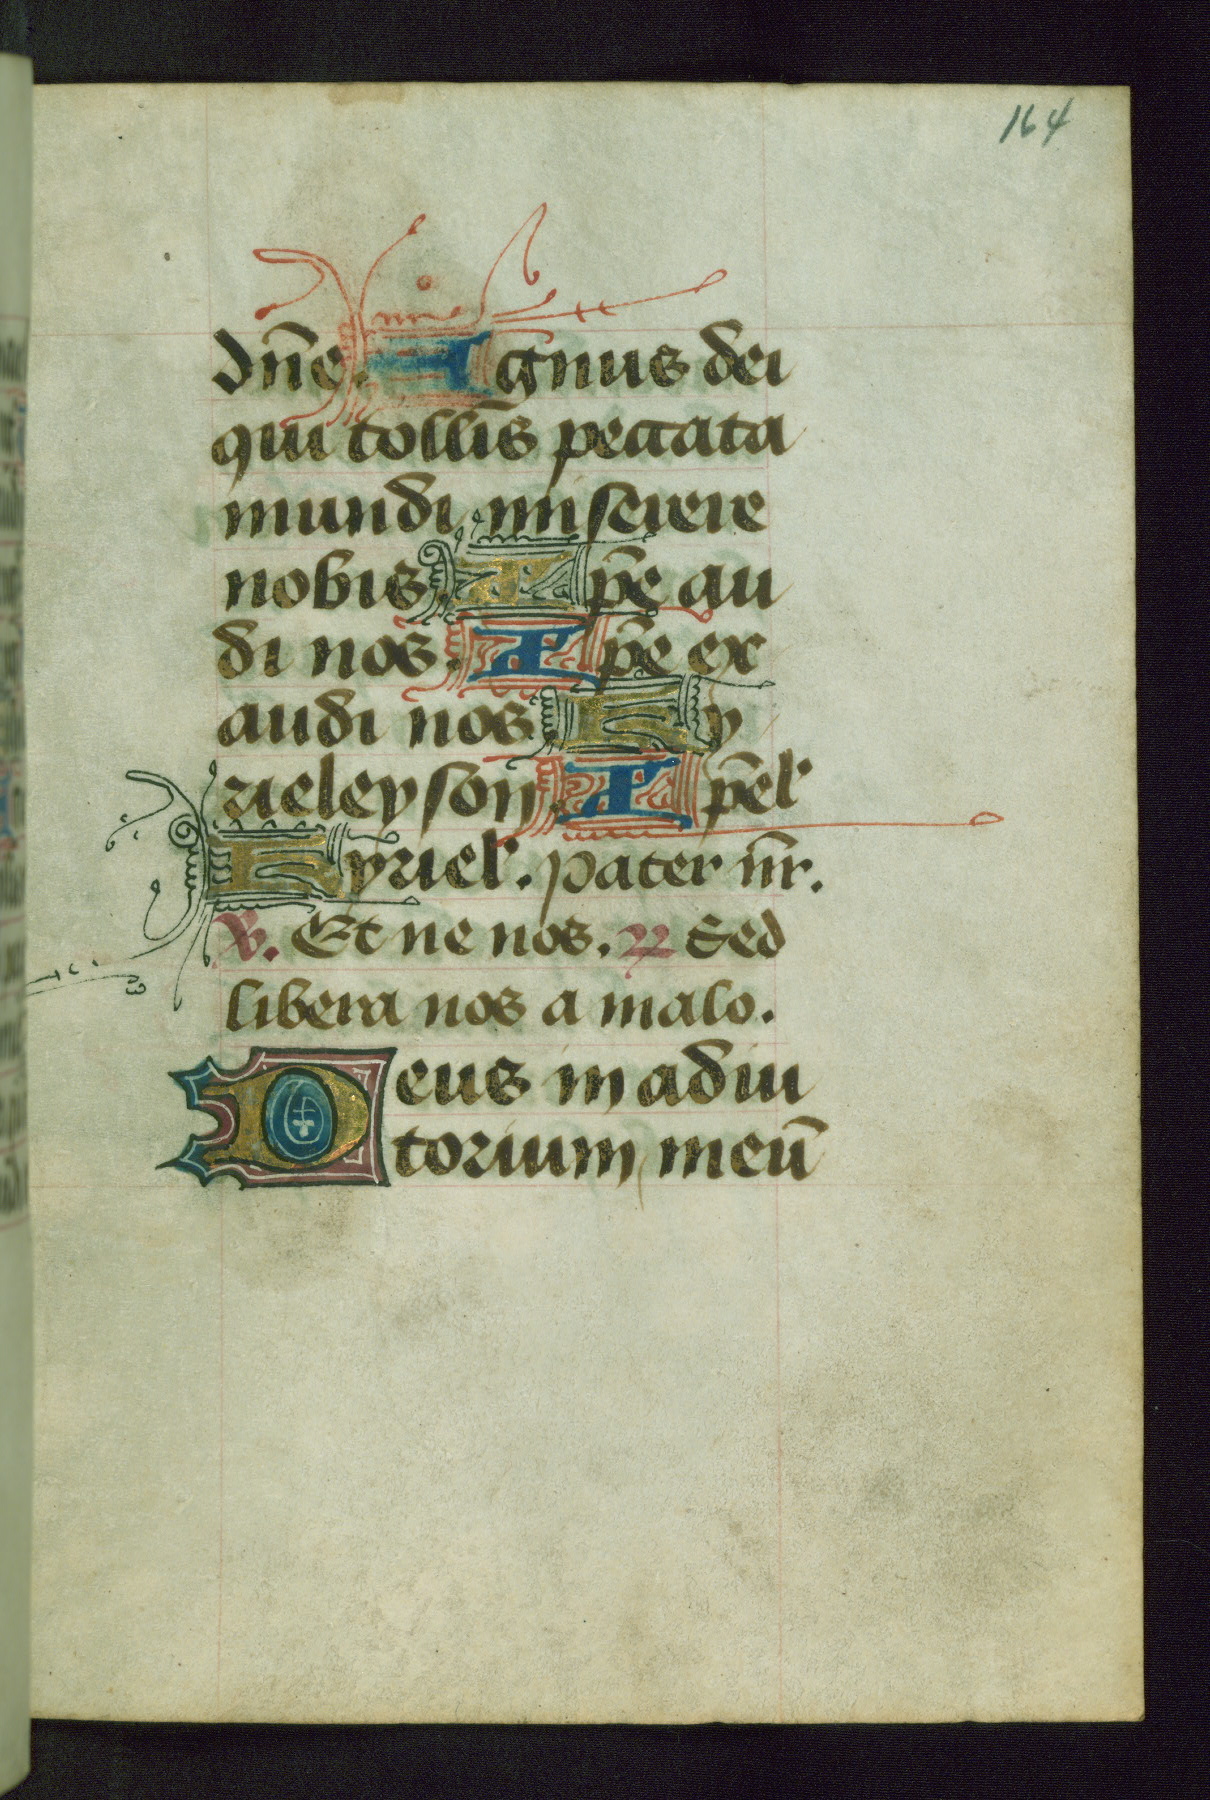 164
dn̄e. Agnus dei
qui tollis peccata
mundi miserere
nobis. Xp̄e au
di nos. Xp̄e ex
audi nos. Ky
rieleyson. Xp̄el'
Kyriel'. Pater nr̄.
V. Et ne nos. R Sed
libera nos a malo.
Deus in adiu
torium meū